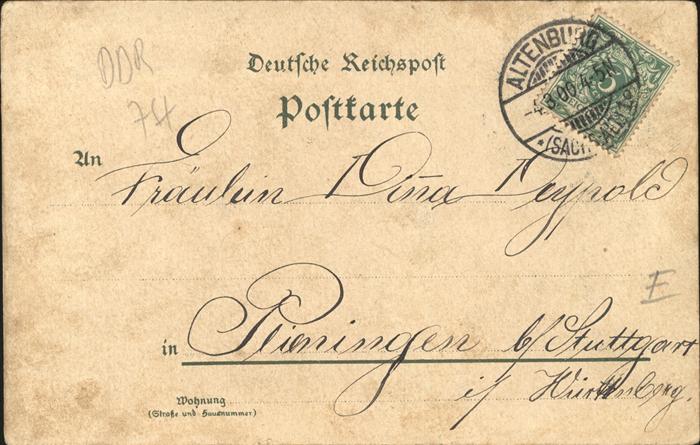 DDR
74
Deutsche Reichspost
Postkarte
ALTENBURG
4-5N
(SACHS.
5
An
Fräulein Dina
in Plieningen b/Stuttgart
i/ Württemberg.
E
Wohnung
(Straße und Hausnummer)